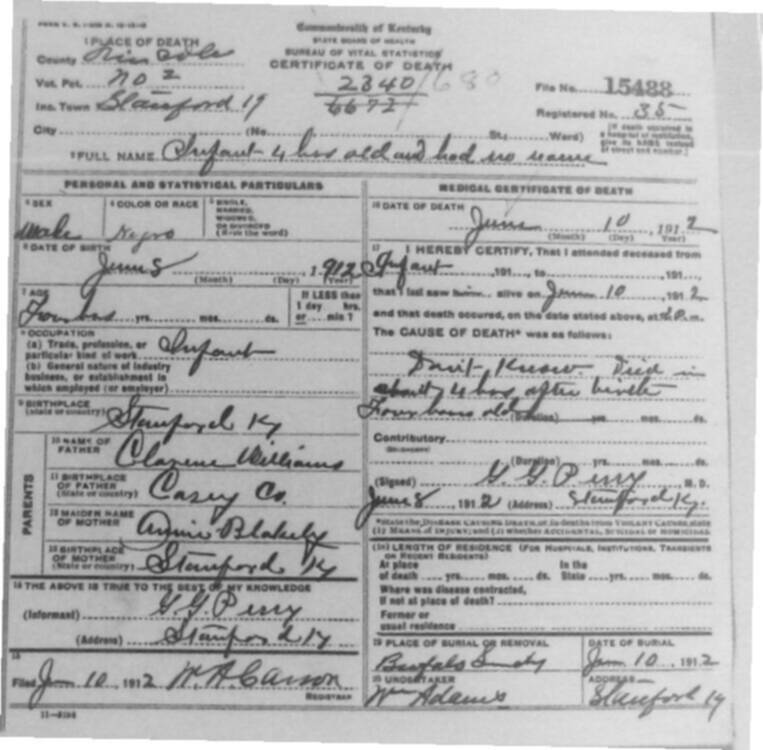 Commonwealth of Kentucky
STATE BOARD OF HEALTH
BUREAU OF VITAL STATISTICS
CERTIFICATE OF DEATH
1 PLACE OF DEATH
County Lincoln
Vot. Pct. No 2
Inc. Town Stanford Ky
City (No. St.; Ward)
2340 680
6672
File No. 15488
Registered No. 35
[If death occurred in a hospital or institution, give its NAME instead of street and number.]
2 FULL NAME Infant 4 hrs old and had no name
PERSONAL AND STATISTICAL PARTICULARS
3 SEX
Male
4 COLOR OR RACE
Negro
5 SINGLE,
MARRIED,
WIDOWED,
OR DIVORCED
(Write the word)
6 DATE OF BIRTH
June 8, 1912
(Month) (Day) (Year)
7 AGE
Four hours yrs. mos. ds.
If LESS than
1 day hrs.
or min?
8 OCCUPATION
(a) Trade, profession, or
particular kind of work Infant
(b) General nature of industry
business, or establishment in
which employed (or employer)
9 BIRTHPLACE
(State or country) Stanford Ky
PARENTS
10 NAME OF
FATHER Clarene Williams
11 BIRTHPLACE
OF FATHER
(State or country) Casey Co.
12 MAIDEN NAME
OF MOTHER Annie Blakely
13 BIRTHPLACE
OF MOTHER
(State or country) Stanford Ky
14 THE ABOVE IS TRUE TO THE BEST OF MY KNOWLEDGE
(Informant) G. G. Perry
(Address) Stanford Ky
15
Filed Jun 10, 1912 W. A. Carson
REGISTRAR
MEDICAL CERTIFICATE OF DEATH
16 DATE OF DEATH
June 10, 1912
(Month) (Day) (Year)
17 I HEREBY CERTIFY, That I attended deceased from
Infant, 191, to, 191,
that I last saw him alive on June 10, 1912
and that death occured, on the date stated above, at m.
The CAUSE OF DEATH* was as follows:
Don't Know. Died in
about 4 hrs after birth
Four hours old
(Duration) yrs. mos. ds.
Contributory
(Secondary)
(Duration) yrs. mos. ds.
(Signed) G. G. Perry M. D.
June 8 1912 (Address) Stanford Ky.
*State the DISEASE CAUSING DEATH, or, in deaths from VIOLENT CAUSES, state
(1) MEANS OF INJURY; and (2) whether ACCIDENTAL, SUICIDAL or HOMICIDAL.
18 LENGTH OF RESIDENCE (FOR HOSPITALS, INSTITUTIONS, TRANSIENTS
OR RECENT RESIDENTS)
At place In the
of death yrs. mos. ds. State yrs. mos. ds.
Where was disease contracted,
if not at place of death?
Former or
usual residence
19 PLACE OF BURIAL OR REMOVAL
Buffalo
DATE OF BURIAL
Jun 10, 1912
20 UNDERTAKER
Wm Adams
ADDRESS
Stanford Ky